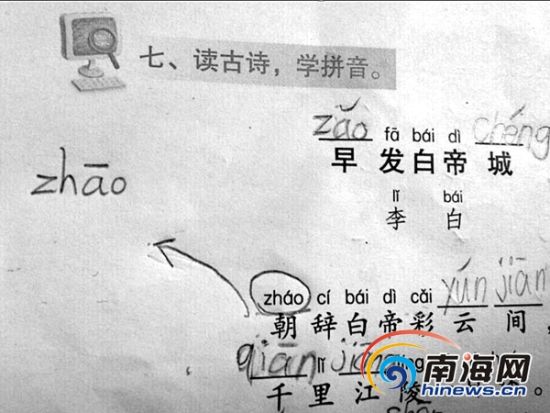 七、读古诗，学拼音。
zǎo fā bái dì chéng
早 发 白 帝 城
zhāo
lǐ bái
李 白
zháo cí bái dì cǎi yún jiān
朝 辞 白 帝 彩 云 间，
qiān lǐ
千 里 江 陵
南海网
hinews.cn